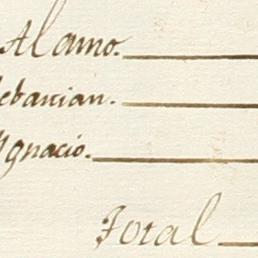 Alamo.
ebastian.
Ygnacio.
Total